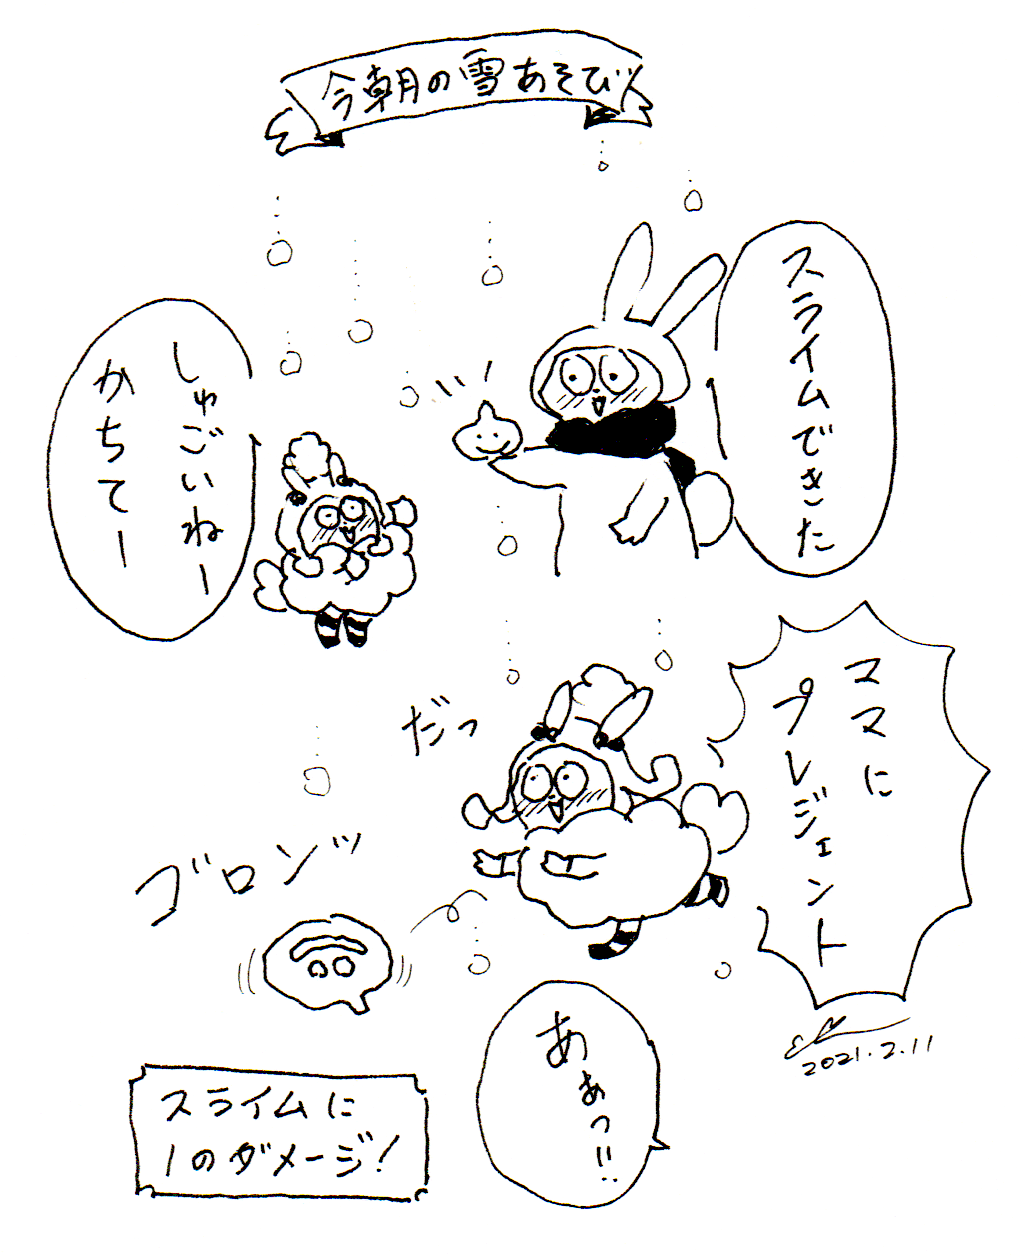 今朝の雪あそび
スライムできた
しゅごいねー
かちてー
ママに
プレジェント
だっ
ゴロンッ
あぁっ!!
スライムに
1のダメージ!
2021.2.11